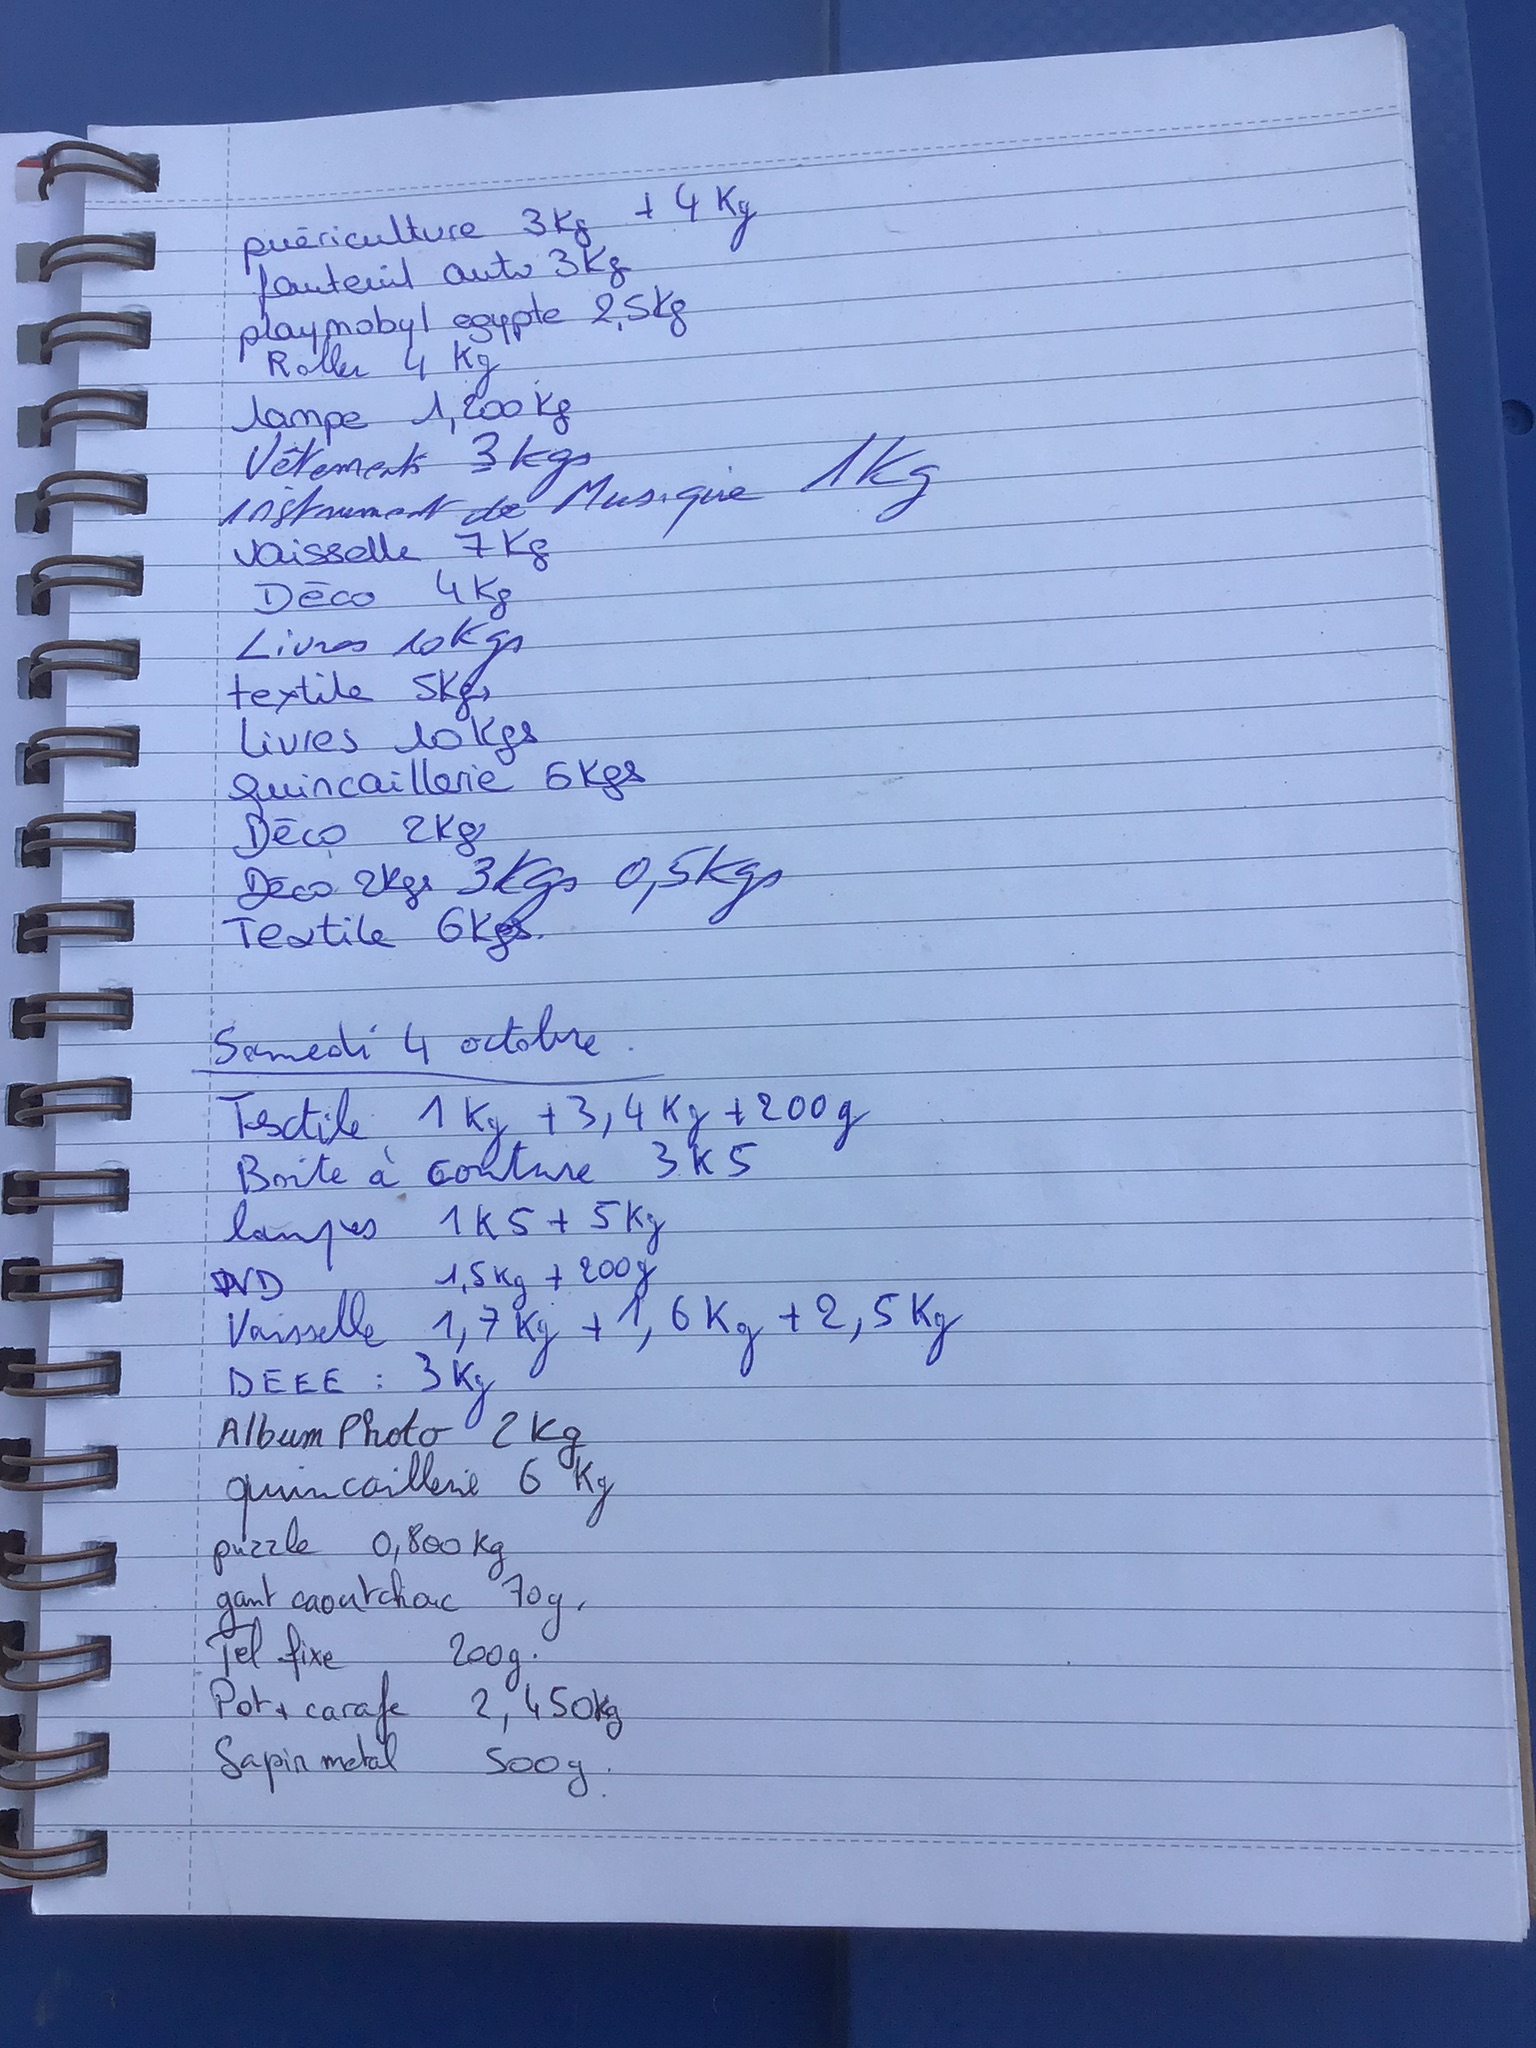 puériculture 3Kg + 4 Kg
fauteuil auto 3Kg
playmobyl egypte 2,5Kg
Roller 4 Kg
lampe 1,200Kg
Vêtements 3kgs
instrument de Musique 1Kg
vaisselle 7Kg
Déco 4Kg
Livres 10Kgs
textile 5Kgs
Livres 10Kgs
quincaillerie 6Kgs
Déco 2Kgs
Déco 2Kgs 3Kgs 0,5Kgs
Textile 6Kgs.
Samedi 4 octobre.
Textile 1Kg + 3,4Kg + 200g
Boite à couture 3K5
lampes 1K5 + 5Kg
DVD 1,5Kg + 200g
Vaisselle 1,7Kg + 1,6Kg + 2,5Kg
DEEE : 3Kg
Album Photo 2Kg
quincaillerie 6 Kg
puzzle 0,800kg
gant caoutchouc 70g.
Tel fixe 200g.
Pot + carafe 2,450kg
Sapin metal 500g.